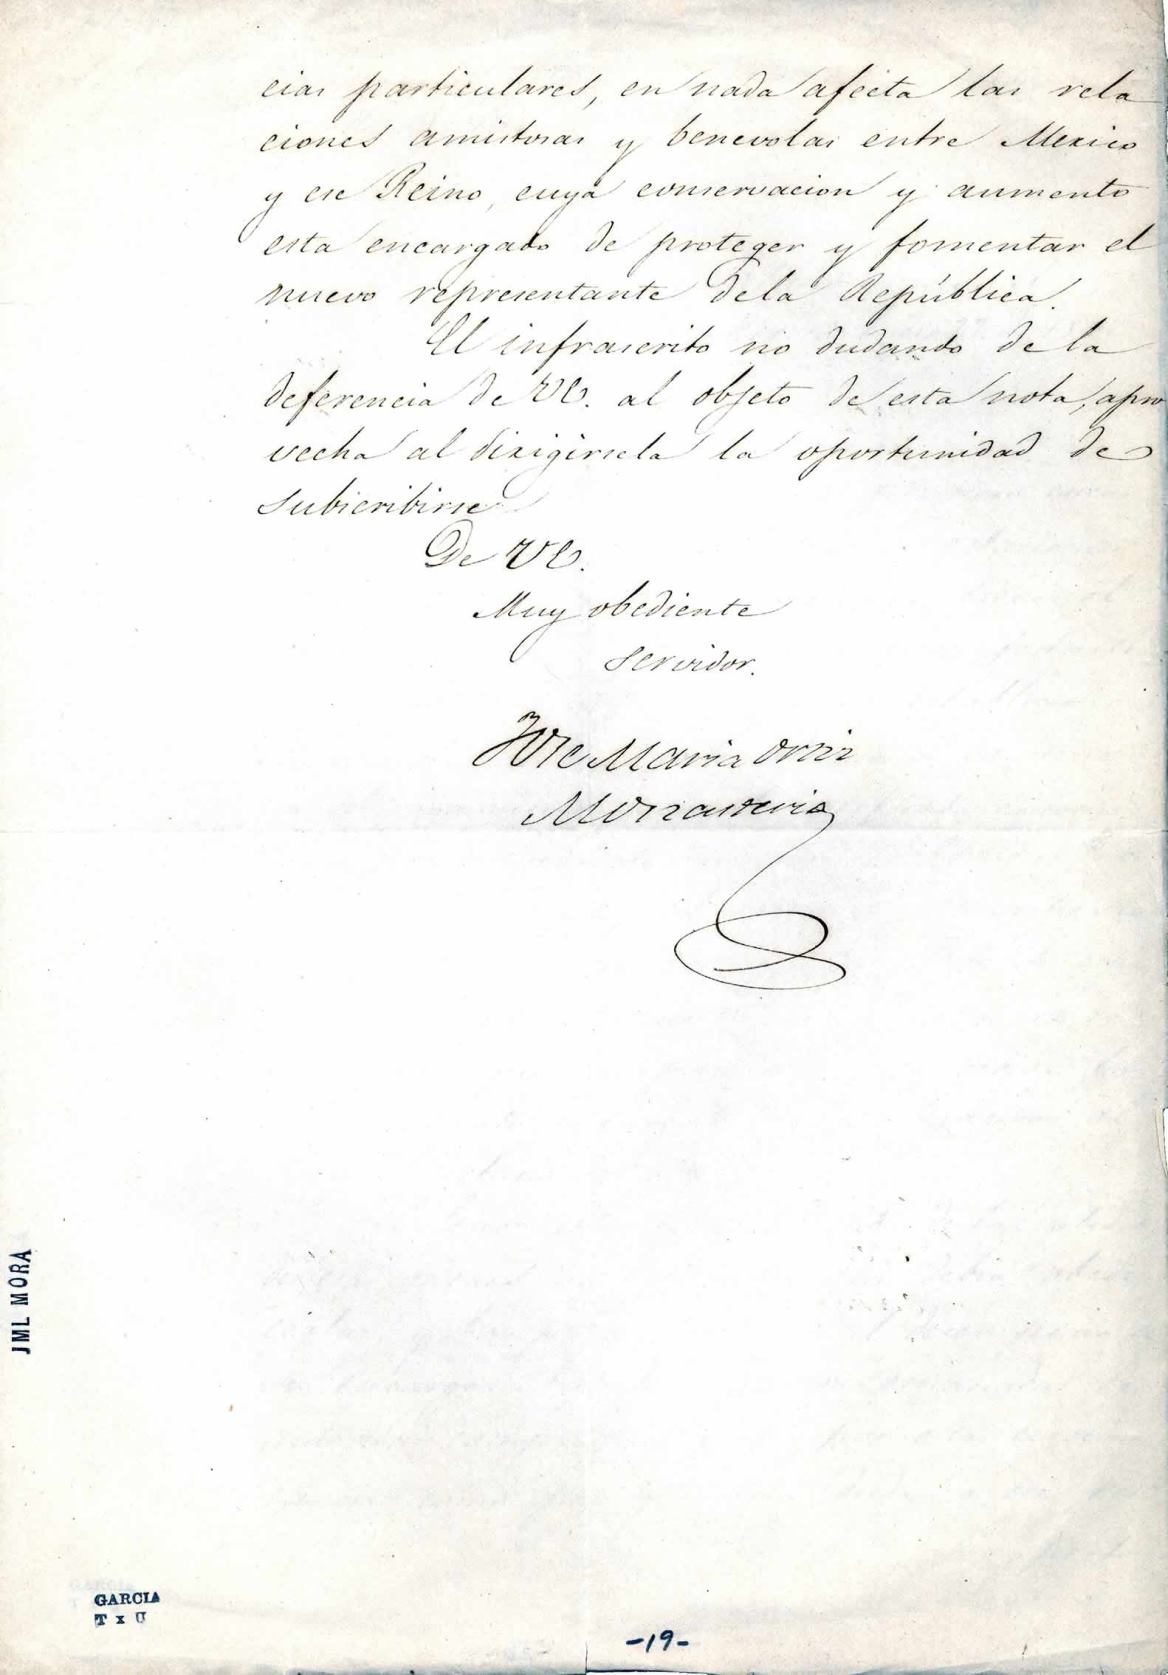 cias particulares, en nada afecta las rela
ciones amistosas y benevolas entre Mexico
y ese Reino, cuya conservacion y aumento
esta encargado de proteger y fomentar el
nuevo representante dela República.
El infrascrito no dudando de la
deferencia de VE. al objeto de esta nota, apro
vecha al dirigirsela la oportunidad de
subscribirse
De VE.
Muy obediente
servidor.
Jose Maria Ortiz
Monasterio
JML MORA
GARCIA
T x U
-19-